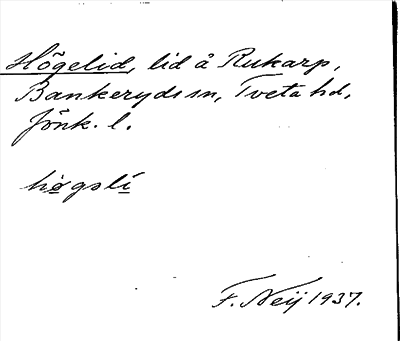 Högelid, lid å Rukarp,
Bankeryds sn, Tveta hd,
Jönk. l.
høgslí
F. Neij 1937.